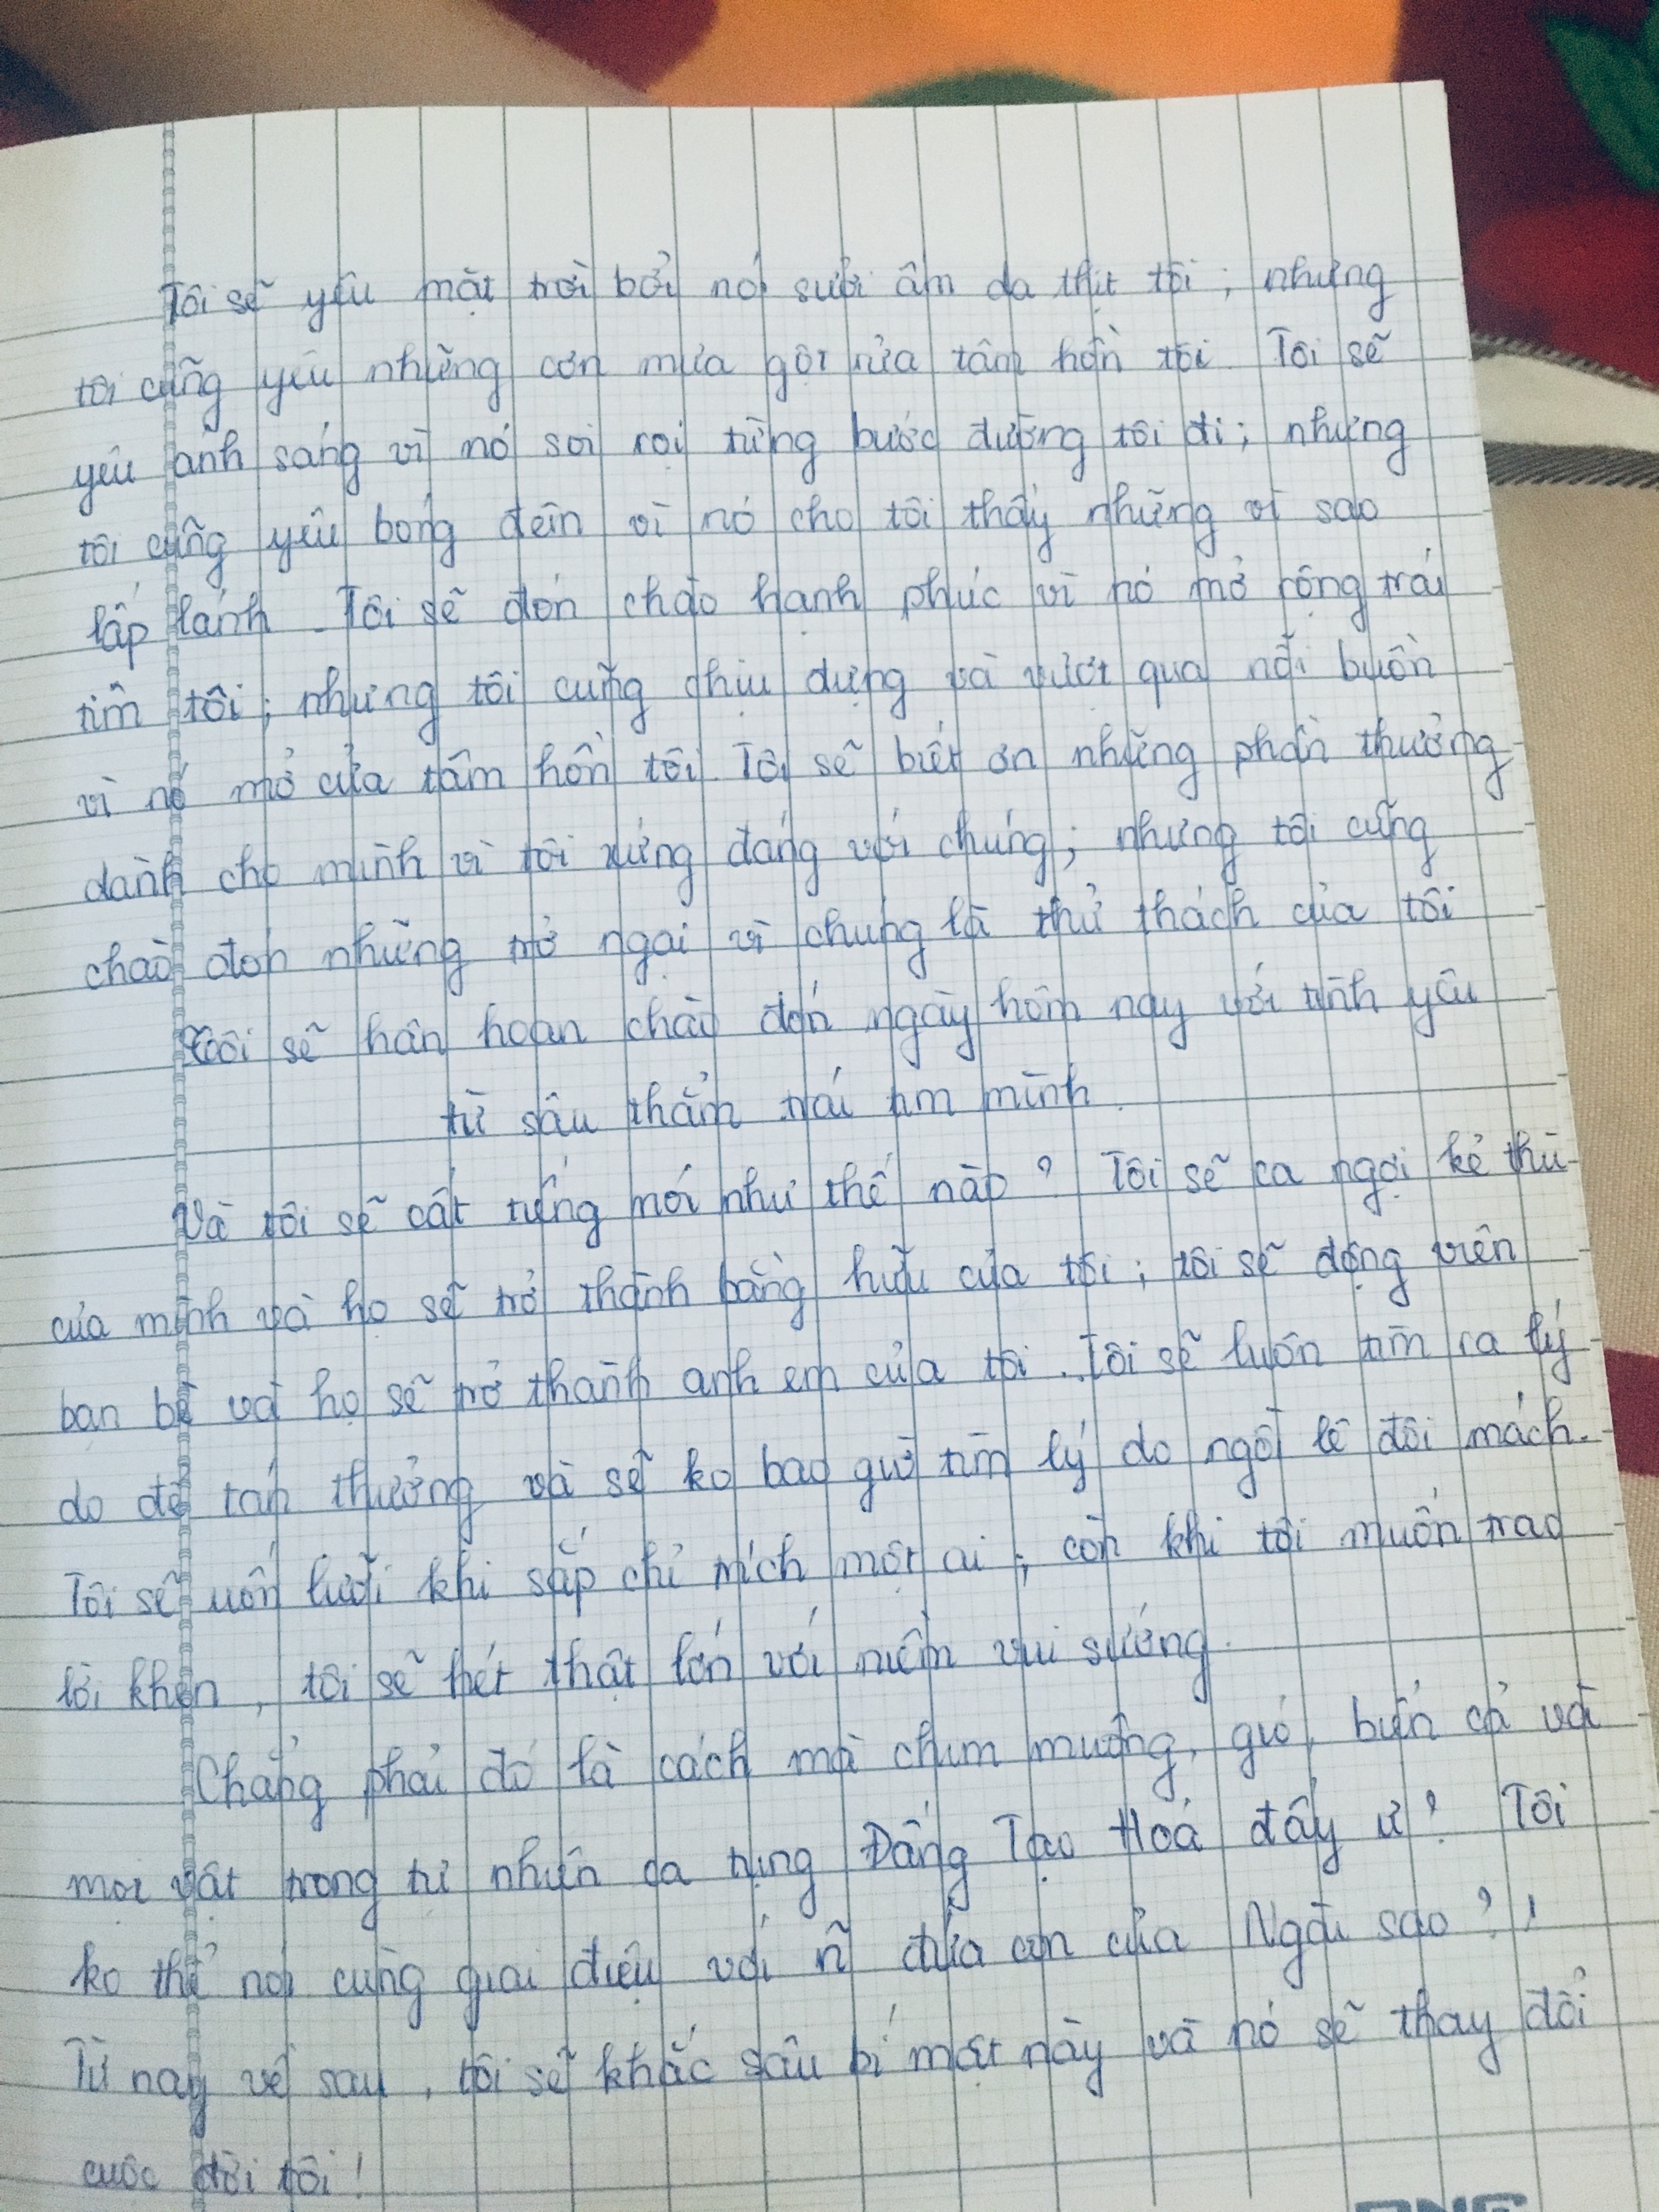 Tôi sẽ yêu mặt trời bởi nó sưởi ấm da thịt tôi ; nhưng
tôi cũng yêu những cơn mưa gột rửa tâm hồn tôi. Tôi sẽ
yêu ánh sáng vì nó soi rọi từng bước đường tôi đi; nhưng
tôi cũng yêu bóng đêm vì nó cho tôi thấy những vì sao
lấp lánh. Tôi sẽ đón chào hạnh phúc vì nó mở rộng trái
tim tôi ; nhưng tôi cũng chịu đựng và vượt qua nỗi buồn
vì nó mở cửa tâm hồn tôi. Tôi sẽ biết ơn những phần thưởng
dành cho mình vì tôi xứng đáng với chúng; nhưng tôi cũng
chào đón những trở ngại vì chúng là thử thách của tôi
Tôi sẽ hân hoan chào đón ngày hôm nay với tình yêu
từ sâu thẳm trái tim mình.
Và tôi sẽ cất tiếng nói như thế nào ? Tôi sẽ ca ngợi kẻ thù
của mình và họ sẽ trở thành bằng hữu của tôi ; tôi sẽ động viên
bạn bè và họ sẽ trở thành anh em của tôi. Tôi sẽ luôn tìm ra lý
do để tán thưởng và sẽ ko bao giờ tìm lý do ngồi lê đôi mách.
Tôi sẽ uốn lưỡi khi sắp chỉ trích một ai ; còn khi tôi muốn trao
lời khen, tôi sẽ hét thật lớn với niềm vui sướng.
Chẳng phải đó là cách mà chim muông, gió, biển cả và
mọi vật trong tự nhiên ca tụng Đấng Tạo Hoá đấy ư ? Tôi
ko thể nói cùng giai điệu với ~n đứa con của Ngài sao ? !
Từ nay về sau, tôi sẽ khắc sâu bí mật này và nó sẽ thay đổi
cuộc đời tôi !